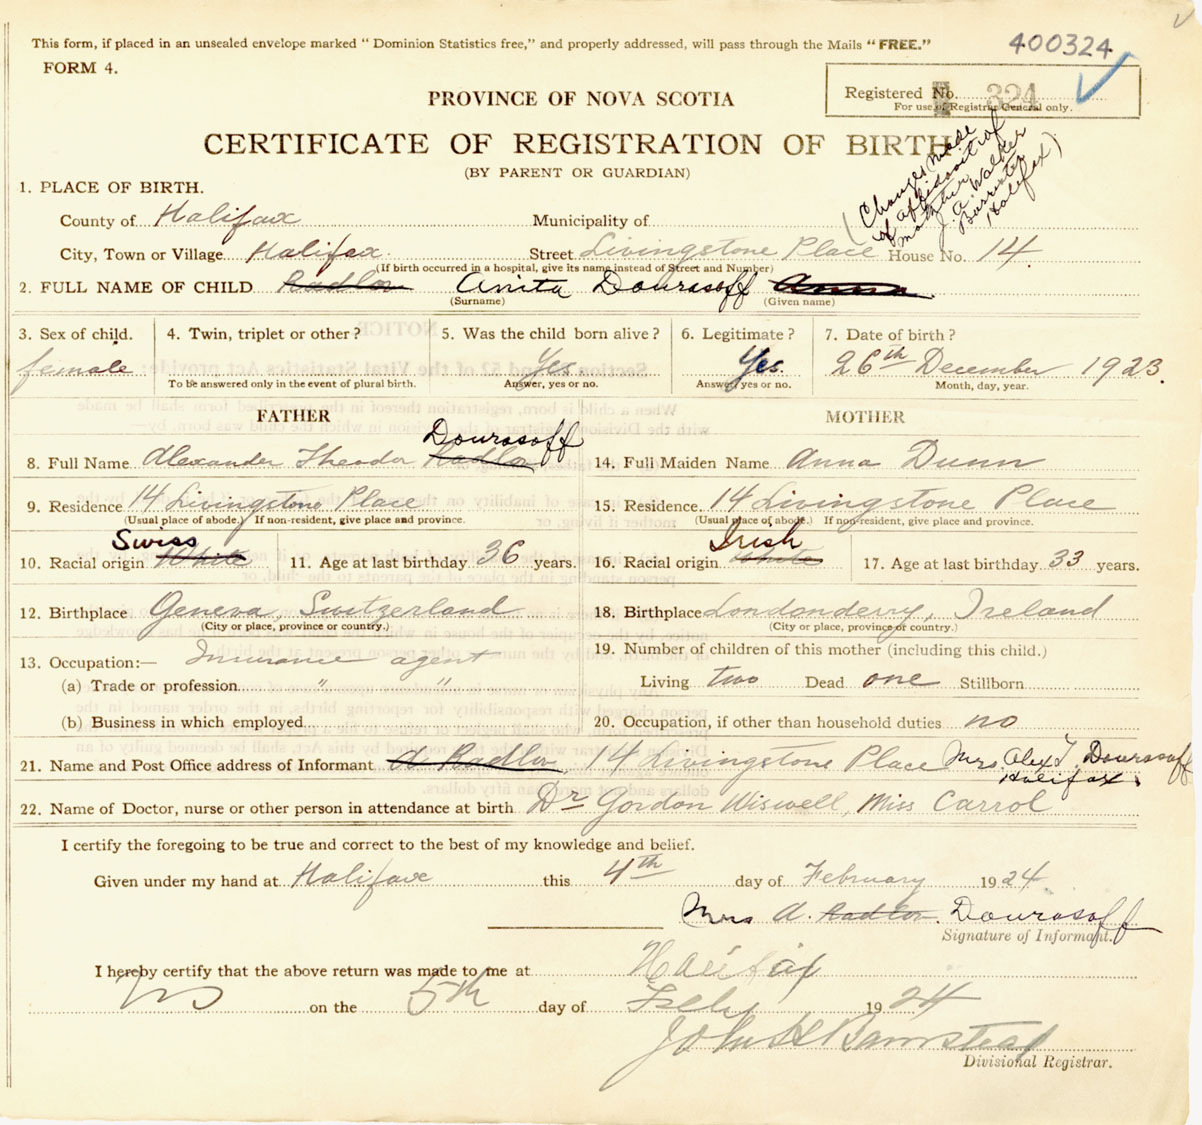 This form, if placed in an unsealed envelope marked "Dominion Statistics free," and properly addressed, will pass through the Mails "FREE."
400324
FORM 4.
Registered No. 324
For use of Registrar General only.
PROVINCE OF NOVA SCOTIA
CERTIFICATE OF REGISTRATION OF BIRTH
(BY PARENT OR GUARDIAN)
(Changes made
of affidavit of
mother
J. A. Walker
Barrister
Halifax)
1. PLACE OF BIRTH.
County of Halifax Municipality of
City, Town or Village Halifax. Street Livingstone Place House No. 14.
(If birth occurred in a hospital, give its name instead of Street and Number)
2. FULL NAME OF CHILD Radlov Anita Dourasoff Anna
(Surname) (Given name)
3. Sex of child. 4. Twin, triplet or other? 5. Was the child born alive? 6. Legitimate? 7. Date of birth?
female Yes Yes. 26th December 1923.
To be answered only in the event of plural birth. Answer, yes or no. Answer, yes or no. Month, day, year.
FATHER MOTHER
Dourasoff
8. Full Name Alexander Theodor Radlov 14. Full Maiden Name Anna Dunn
9. Residence 14 Livingstone Place 15. Residence. 14 Livingstone Place
(Usual place of abode.) If non-resident, give place and province. (Usual place of abode.) If non-resident, give place and province.
Swiss Irish
10. Racial origin White 11. Age at last birthday 36 years. 16. Racial origin White 17. Age at last birthday 33 years.
12. Birthplace Geneva, Switzerland 18. Birthplace Londonderry, Ireland
(City or place, province or country.) (City or place, province or country.)
13. Occupation:— Insurance agent 19. Number of children of this mother (including this child.)
(a) Trade or profession " " Living two Dead one Stillborn
(b) Business in which employed 20. Occupation, if other than household duties no
21. Name and Post Office address of Informant A Radlov, 14 Livingstone Place Mrs. Alex T. Dourasoff
Halifax.
22. Name of Doctor, nurse or other person in attendance at birth Dr Gordon Wiswell, Miss Carrol
I certify the foregoing to be true and correct to the best of my knowledge and belief.
Given under my hand at Halifax this 4th day of February 1924.
Mrs A. Radlov. Dourasoff
Signature of Informant.
I hereby certify that the above return was made to me at Halifax
NS on the 5th day of Feby 1924
John H Barnstead
Divisional Registrar.